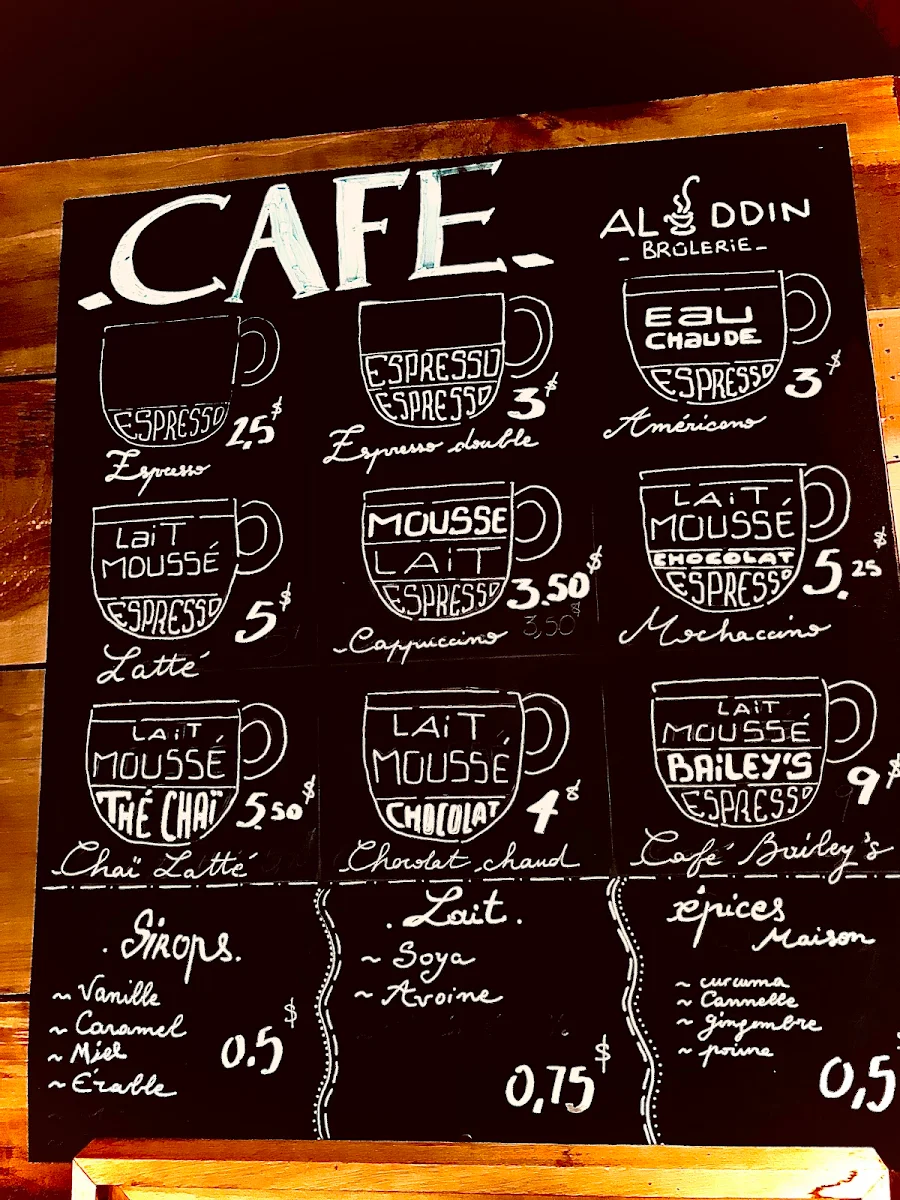 CAFE
ALADDIN
- BRÛLERIE -
ESPRESSO
2,5 $
Espresso
ESPRESSO
ESPRESSO
3 $
Espresso double
EAU
CHAUDE
ESPRESSO
3 $
Américano
LAIT
MOUSSÉ
ESPRESSO
5 $
Latté
MOUSSE
LAIT
ESPRESSO
3.50 $
3,50 $
Cappuccino
LAIT
MOUSSÉ
CHOCOLAT
ESPRESSO
5.25 $
Mochaccino
LAIT
MOUSSÉ
THÉ CHAÏ
5.50 $
Chaï Latté
LAIT
MOUSSÉ
CHOCOLAT
4 $
Chocolat chaud
LAIT
MOUSSÉ
BAILEY'S
ESPRESSO
9 $
Café Bailey's
. Sirops.
~ Vanille
~ Caramel
~ Miel
~ Érable
0.5 $
. Lait .
~ Soya
~ Avoine
0,75 $
épices
Maison
~ curcuma
~ Cannelle
~ gingembre
~ poivre
0,5 $